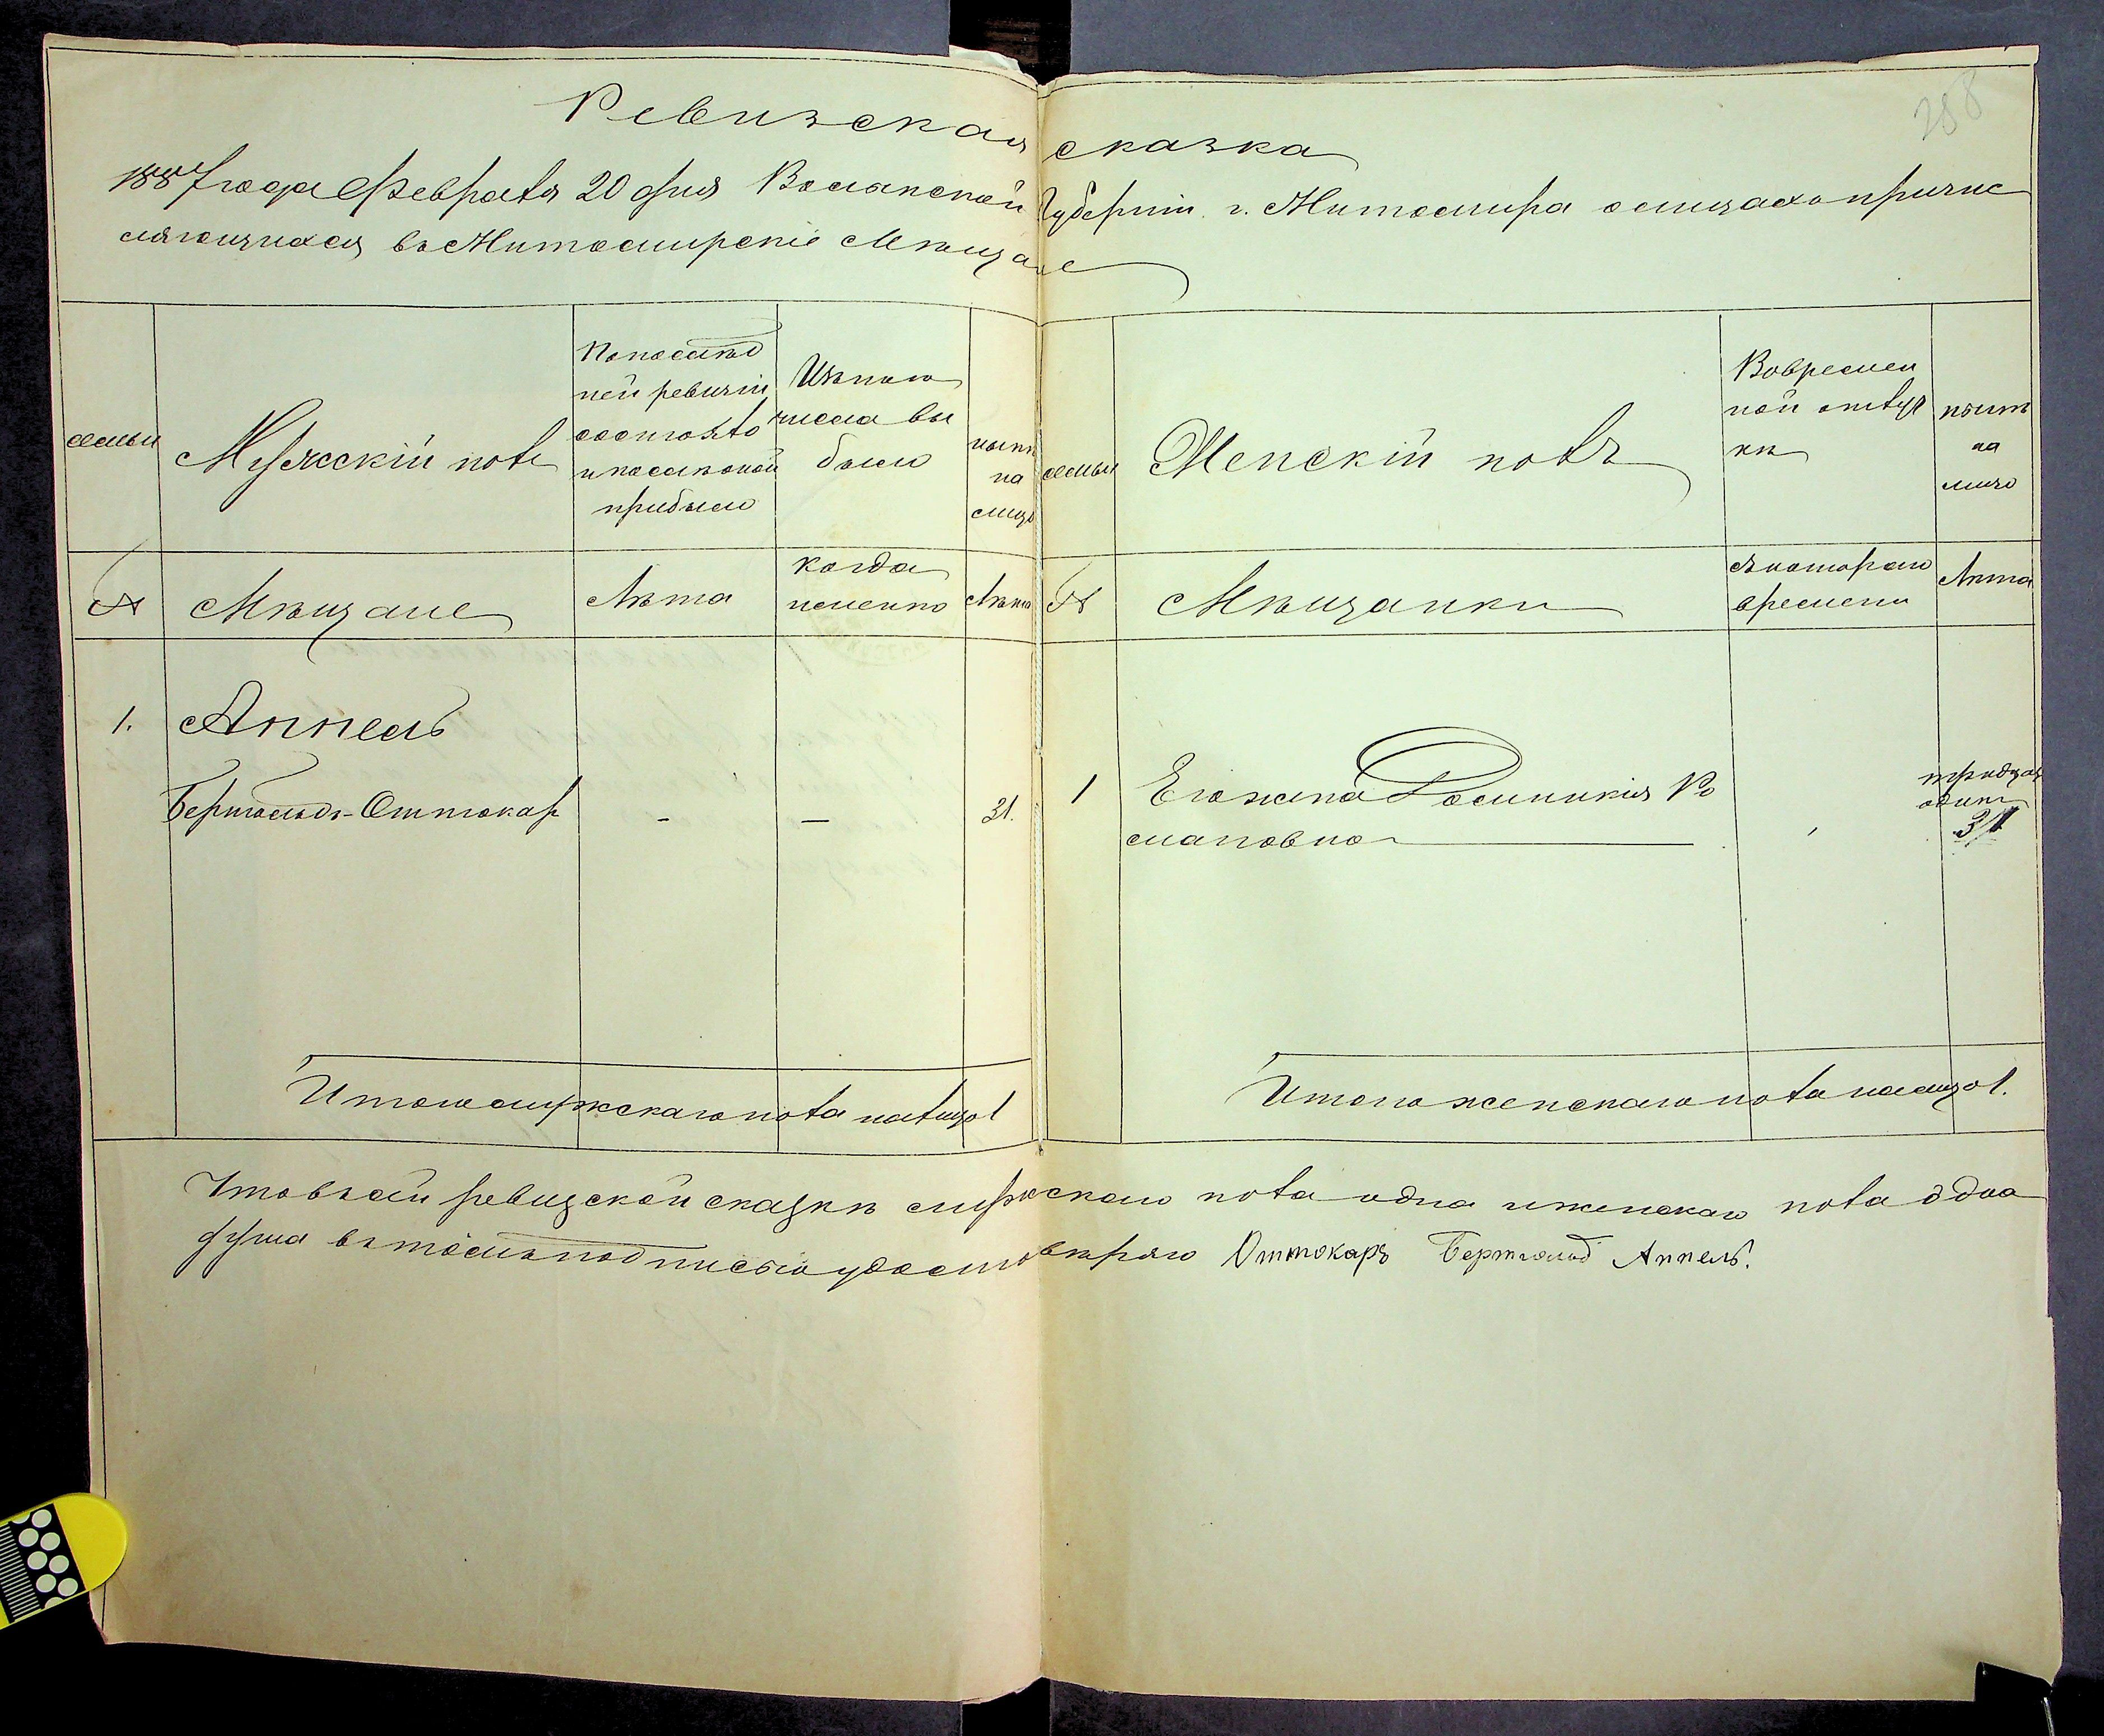 288
Ревизская сказка
1887 года Февраля 20 дня Волынской Губерніи г. Житомира о лицахъ причис
ляющихся въ Житомирскіе Мѣщане
семьи
Мужескій полъ
По послѣд
ней ревизіи
состояло
и послѣ оной
прибыло
Изъ того
числа вы
было
нынѣ
на
лицо
семьи
Женскій полъ
Вовремен
ной отлуч
кѣ
нынѣ
на
лицо
№
Мѣщане
Лѣта
когда
именно
Лѣта
№
Мѣщанки
съ котораго
времени
Лѣта
1.
Аппель
Бертольдъ-Оттокар
-
—
31.
1
жена Доминикія Ро
мановна
тридцать
одинъ
31
Итого мужскаго пола налицо 1
Итого женскаго пола налицо 1.
Что въ сей ревизской сказкѣ мужескаго пола одна и женскаго пола одна
душа въ томъ подписью удостовѣряю Оттокаръ Бертольд Аппель.